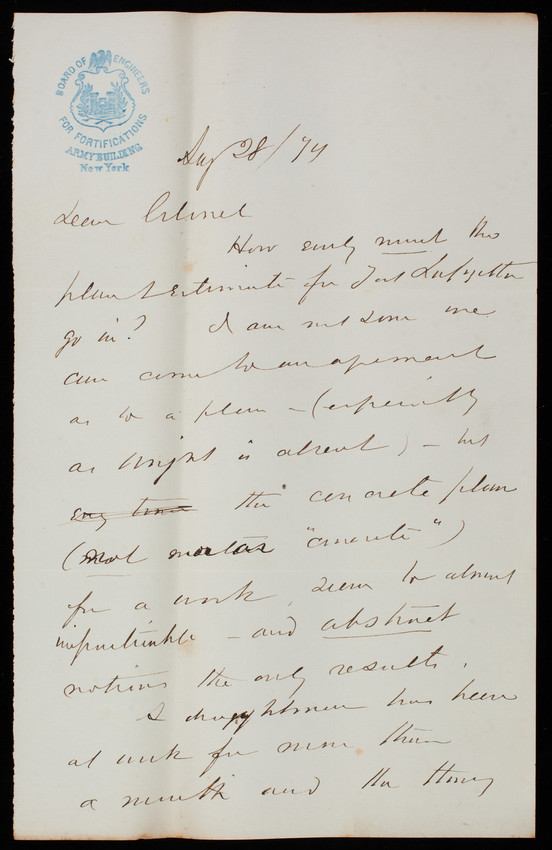 BOARD OF ENGINEERS
FOR FORTIFICATIONS
ARMY BUILDING
New York
Aug 28/74
Dear Colonel
How early must the
plan & estimate for Fort Lafayette
go in? I am not sure we
can come to an agreement
as to a plan - (especially
as Wright is absent) - but
any time the concrete plan
(not mortar "concrete")
for a work, seem to almost
impracticable - and abstract
notions the only results.
A draughtsman has been
at work for more than
a month and the thing